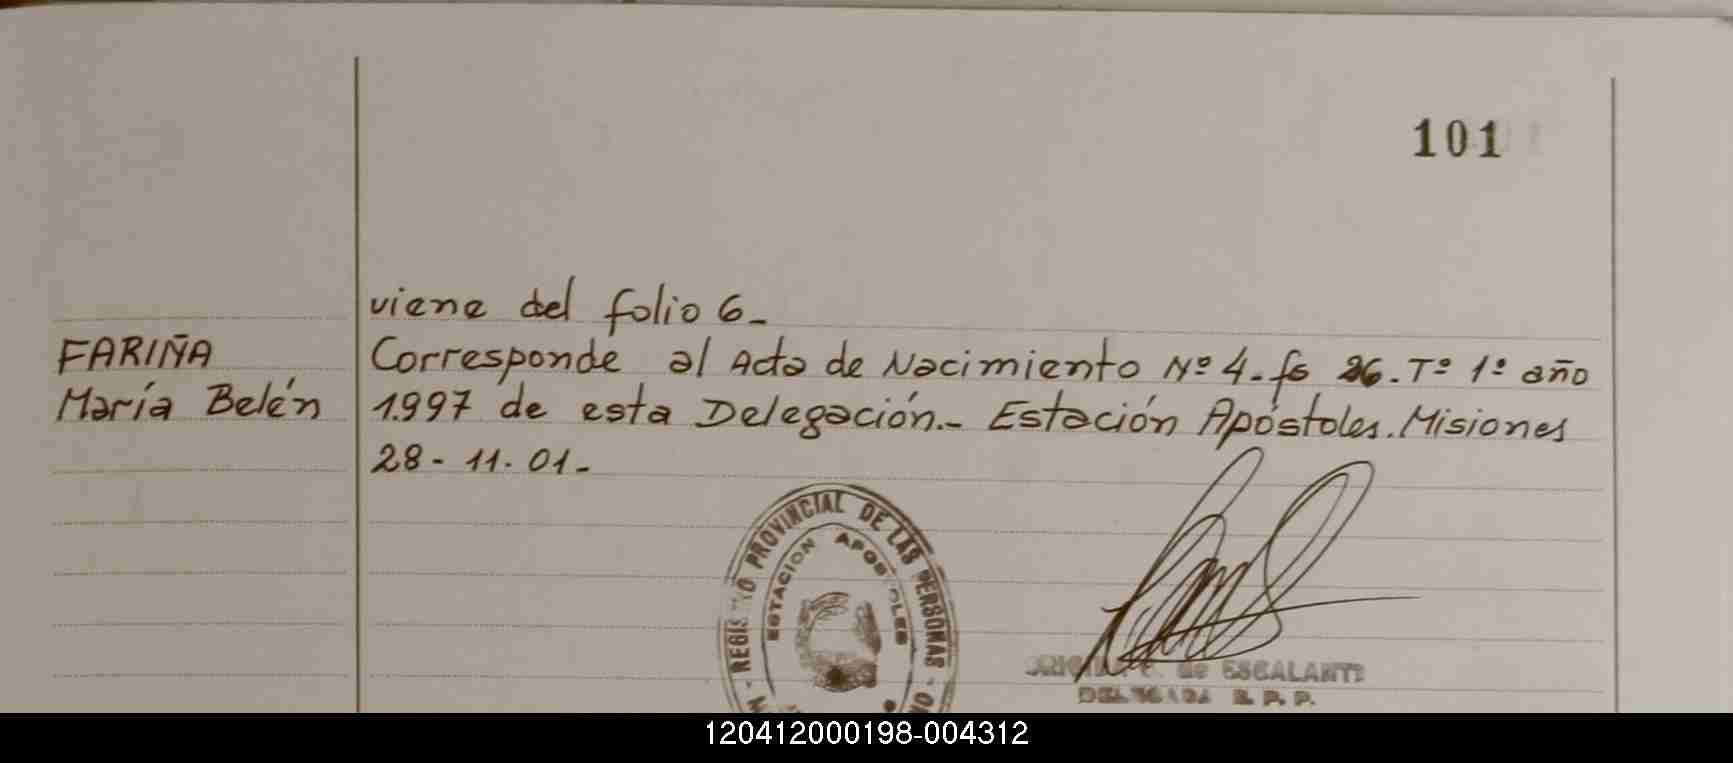 101
viene del folio 6_
FARIÑA
Corresponde al Acta de Nacimiento Nº 4. fs 26. Tº 1º año
María Belén
1.997 de esta Delegación._ Estación Apóstoles. Misiones
28- 11. 01._
REGISTRO PROVINCIAL DE LAS PERSONAS
ESTACION APOSTOLES
de ESCALANTE
DELEGADA R. P. P.
120412000198-004312